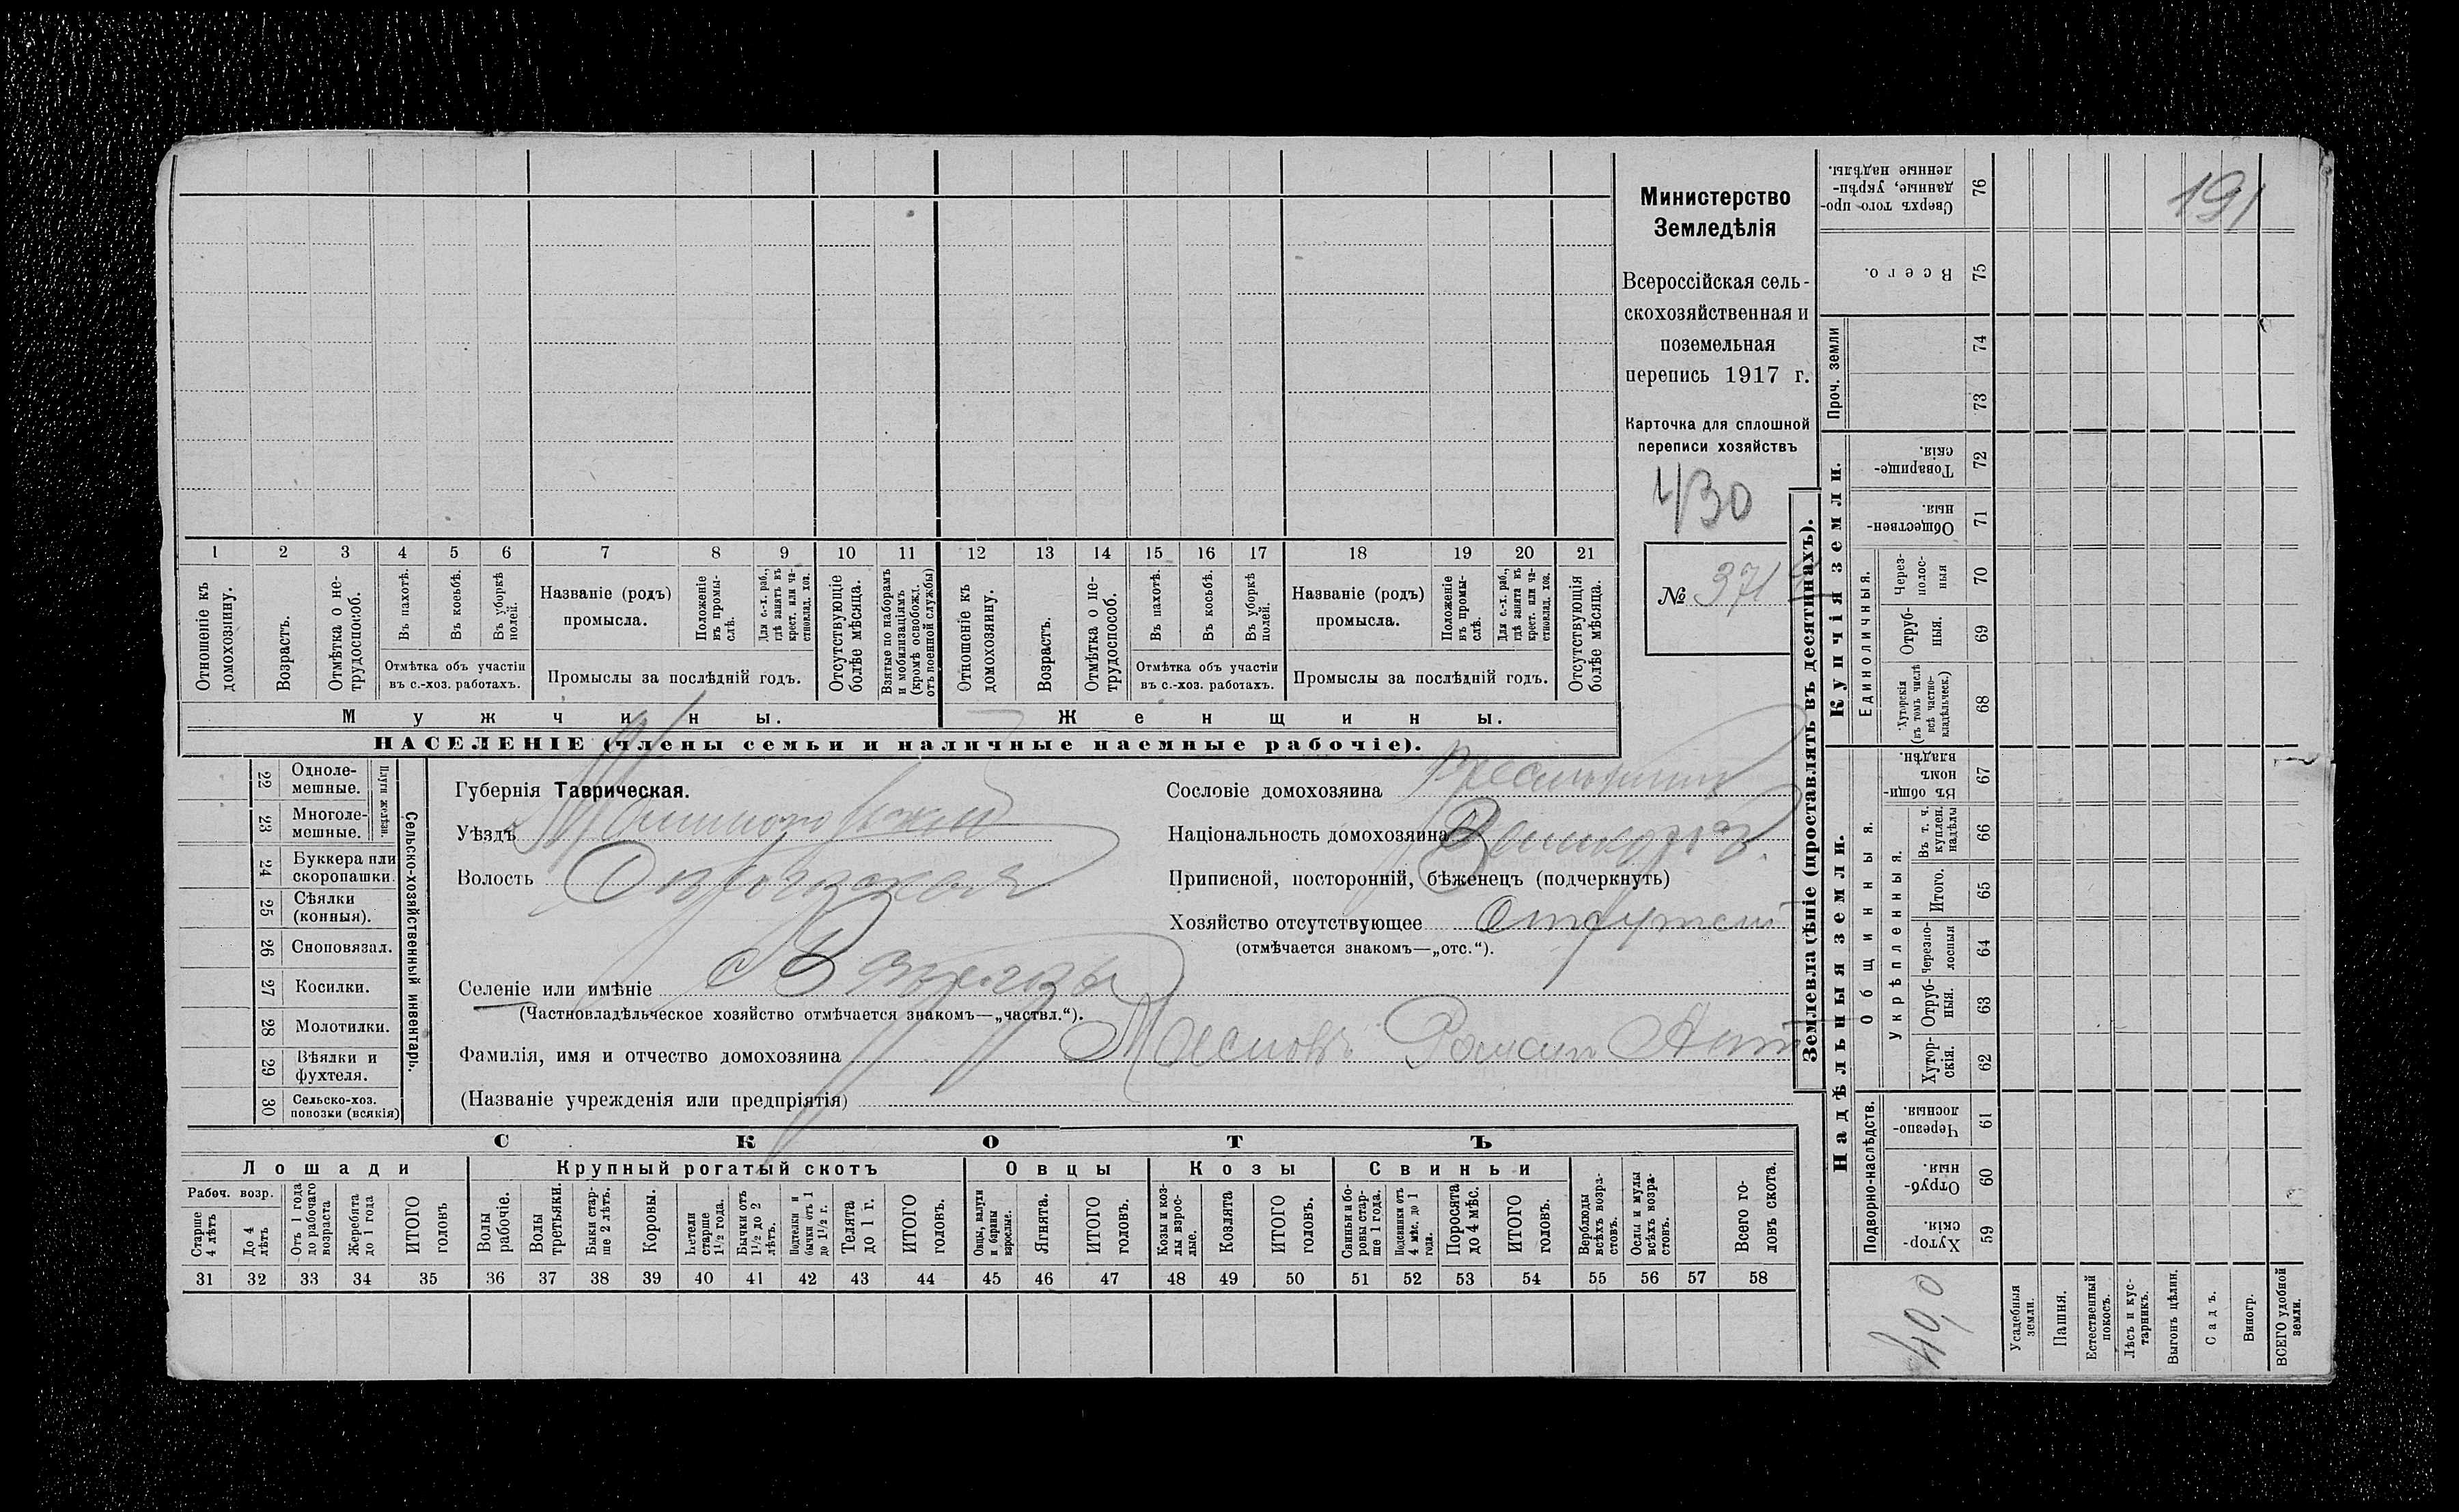 1 2 3 4 5 6 7 8 9 10 11 12 13 14 15 16 17 18 19 20 21
Отношеніе къ домохозяину.
Возрастъ.
Отмѣтка о не-
трудоспособ.
Въ пахотѣ.
Въ косьбѣ.
Въ уборкѣ
полей.
Отмѣтка объ участіи
въ с.-хоз. работахъ.
Названіе (родъ)
промысла.
Положеніе
въ промы-
слѣ.
Для с.-х. раб.,
гдѣ занятъ въ
крест. или ча-
стновлад. хоз.
Промыслы за послѣдній годъ.
Отсутствующіе
болѣе мѣсяца.
Взятые по наборамъ
и мобилизаціямъ
(кромѣ освобожд.
отъ военной службы)
Отношеніе къ
домохозяину.
Возрастъ.
Отмѣтка о не-
трудоспособ.
Въ пахотѣ.
Въ косьбѣ.
Въ уборкѣ
полей.
Отмѣтка объ участіи
въ с.-хоз. работахъ.
Названіе (родъ)
промысла.
Положеніе
въ промы-
слѣ.
Для с.-х. раб.,
гдѣ занята въ
крест. или ча-
стновлад. хоз.
Промыслы за послѣдній годъ.
Отсутствующія
болѣе мѣсяца.
Мужчины.
Женщины.
НАСЕЛЕНІЕ (члены семьи и наличные наемные рабочіе).
Министерство
Земледѣлія
Всероссійская сель-
скохозяйственная и
поземельная
перепись 1917 г.
Карточка для сплошной
переписи хозяйствъ
430
№ 371
22 Одноле-
мешные.
23 Многоле-
мешные.
Плуги желѣзн.
24 Буккера или
скоропашки.
25 Сѣялки
(конныя).
26 Сноповязал.
27 Косилки.
28 Молотилки.
29 Вѣялки и
фухтеля.
30 Сельско-хоз.
повозки (всякія)
Сельско-хозяйственный инвентарь.
Губернія Таврическая.
Уѣздъ
Волость
Селеніе или имѣніе с
(Частновладѣльческое хозяйство отмѣчается знакомъ—„частвл.“).
Фамилія, имя и отчество домохозяина Масловъ Романъ
(Названіе учрежденія или предпріятія)
Сословіе домохозяина
Національность домохозяина
Приписной, посторонній, бѣженецъ (подчеркнуть)
Хозяйство отсутствующее
(отмѣчается знакомъ—„отс.“).
СКОТЪ
Лошади
Крупный рогатый скотъ
Овцы
Козы
Свиньи
Рабоч. возр.
Старше
4 лѣтъ
До 4
лѣтъ
Отъ 1 года
до рабочаго
возраста
Жеребята
до 1 года
ИТОГО
головъ
Волы
рабочіе.
Волы
третьяки.
Быки стар-
ше 2 лѣтъ.
Коровы.
Нетели
старше
1½ года.
Бычки отъ
1½ до 2
лѣтъ.
Подтелки и
бычки отъ 1
до 1½ г.
Телята
до 1 г.
ИТОГО
головъ.
Овцы, валухи
и бараны
взрослые.
Ягнята.
ИТОГО
головъ.
Козы и коз-
лы взрос-
лые.
Козлята
ИТОГО
головъ.
Свиньи и бо-
ровы стар-
ше 1 года.
Подсвинки отъ
4 мѣс. до 1
года.
Поросята
до 4 мѣс.
ИТОГО
головъ.
Верблюды
всѣхъ возра-
стовъ.
Ослы и мулы
всѣхъ возра-
стовъ.
Всего го-
ловъ скота.
31 32 33 34 35 36 37 38 39 40 41 42 43 44 45 46 47 48 49 50 51 52 53 54 55 56 57 58
Землевладѣніе (проставлять въ десятинахъ).
Надѣльныя земли.
Купчія земли.
Проч. земли
Подворно-наслѣдств.
Общинныя.
Укрѣпленныя.
Единоличныя.
Хутор-
скія.
59
Отруб-
ныя.
60
Черезпо-
лосныя.
61
Хутор-
скія.
62
Отруб-
ныя.
63
Черезпо-
лосныя
64
Итого.
65
Въ т. ч.
куплен.
надѣлы
66
Въ общин-
номъ
владѣн.
67
Хуторскія
(въ томъ числѣ
всѣ частно-
владѣльческ.)
68
Отруб-
ныя.
69
Через-
полос-
ныя
70
Обществен-
ныя.
71
Товарище-
скія.
72
73
74
Всего.
75
Сверхъ того про-
данные, укрѣп-
ленные надѣлы.
76
Усадебныя
земли.
Пашня.
Естественный
покосъ.
Лѣсъ и кус-
тарникъ.
Выгонъ цѣлин.
Садъ.
Виногр.
ВСЕГО удобной
земли.
191